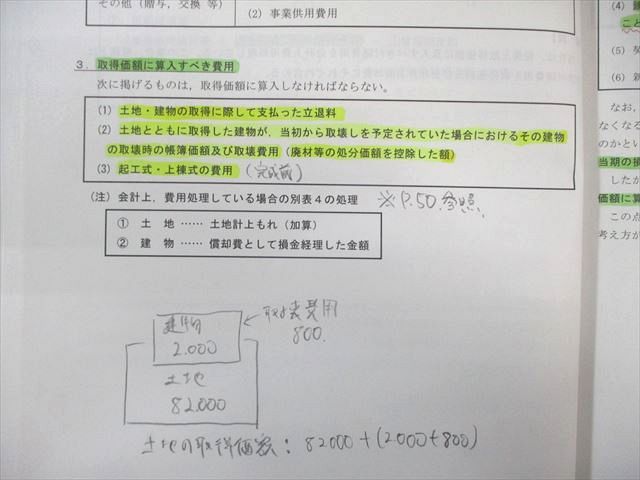 その他（贈与，交換 等）
(2) 事業供用費用
3．取得価額に算入すべき費用
次に掲げるものは，取得価額に算入しなければならない。
(1) 土地・建物の取得に際して支払った立退料
(2) 土地とともに取得した建物が，当初から取壊しを予定されていた場合におけるその建物
の取壊時の帳簿価額及び取壊費用（廃材等の処分価額を控除した額）
(3) 起工式・上棟式の費用 (完成前)
（注）会計上，費用処理している場合の別表4の処理 ※P.50.参照
① 土 地 …… 土地計上もれ（加算）
② 建 物 …… 償却費として損金経理した金額
建物
2.000
←取壊費用
800.
土地
82.000
土地の取得価額：82000+(2000+800)
(4)
(5)
(6)
なお，
なくなる
のかとい
当期の損
したか
価額に算
この点
考え方が